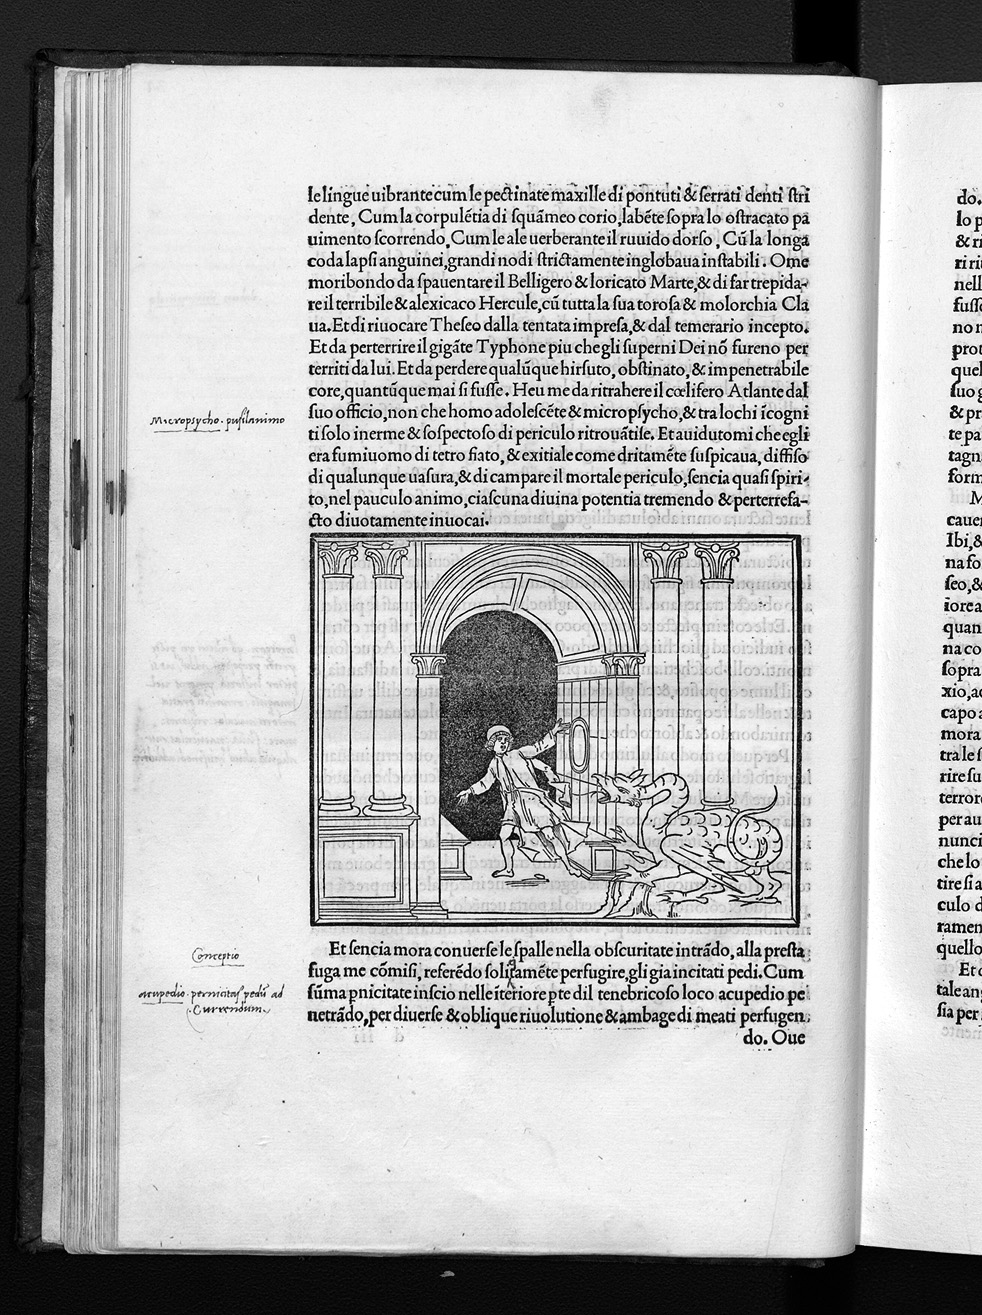 le lingue uibrante cum le pectinate maxille di pontuti & serrati denti stri
dente, Cum la corpulẽtia di squãmeo corio, labẽte sopra lo ostracato pa
uimento scorrendo, Cum le ale uerberante il ruuido dorso, Cũ la longa
coda lapsi anguinei, grandi nodi strictamente inglobaua instabili. Ome
moribondo da spauentare il Belligero & loricato Marte, & di far trepida-
re il terribile & alexicaco Hercule, cũ tutta la sua torosa & molorchia Cla
ua. Et di riuocare Theseo dalla tentata impresa, & dal temerario incepto.
Et da perterrire il gigãte Typhone piu che gli superni Dei nõ fureno per
territi da lui. Et da perdere qualũque hirsuto, obstinato, & impenetrabile
core, quantũque mai si fusse. Heu me da ritrahere il cœlifero Atlante dal
suo officio, non che homo adolescẽte & micropsycho, & tra lochi ĩcogni
ti solo inerme & sospectoso di periculo ritrouãtise. Et auidutomi che egli
era fumiuomo di tetro fiato, & exitiale come dritamẽte suspicaua, diffiso
di qualunque uasura, & di campare il mortale periculo, sencia quasi spiri-
to, nel pauculo animo, ciascuna diuina potentia tremendo & perterrefa-
cto diuotamente inuocai.
Micropsycho. pusilanimo
Et sencia mora conuerse le spalle nella obscuritate intrãdo, alla presta
fuga me cõmisi, referẽdo solitamẽte perfugire, gli gia incitati pedi. Cum
sũma p̃nicitate inscio nelle ĩteriore p̱te dil tenebricoso loco acupedio pe
netrãdo, per diuerse & oblique riuolutione & ambage di meati perfugen
do. Oue
Conceptio
acupedio. pernicitas pedũ ad
Currendum.
do.
lo p
& ri
ri ri
nell
fuss
no n
prot
quel
suo g
& pr
te pa
tagn
form
M
cauer
Ibi, &
na fo
seo, &
iore a
quan
na co
sopra
xio, a
capo a
mora
tra le s
rire su
terror
per au
nunci
che lo
tire si a
culo d
ramen
quello
Et
tale an
sia per